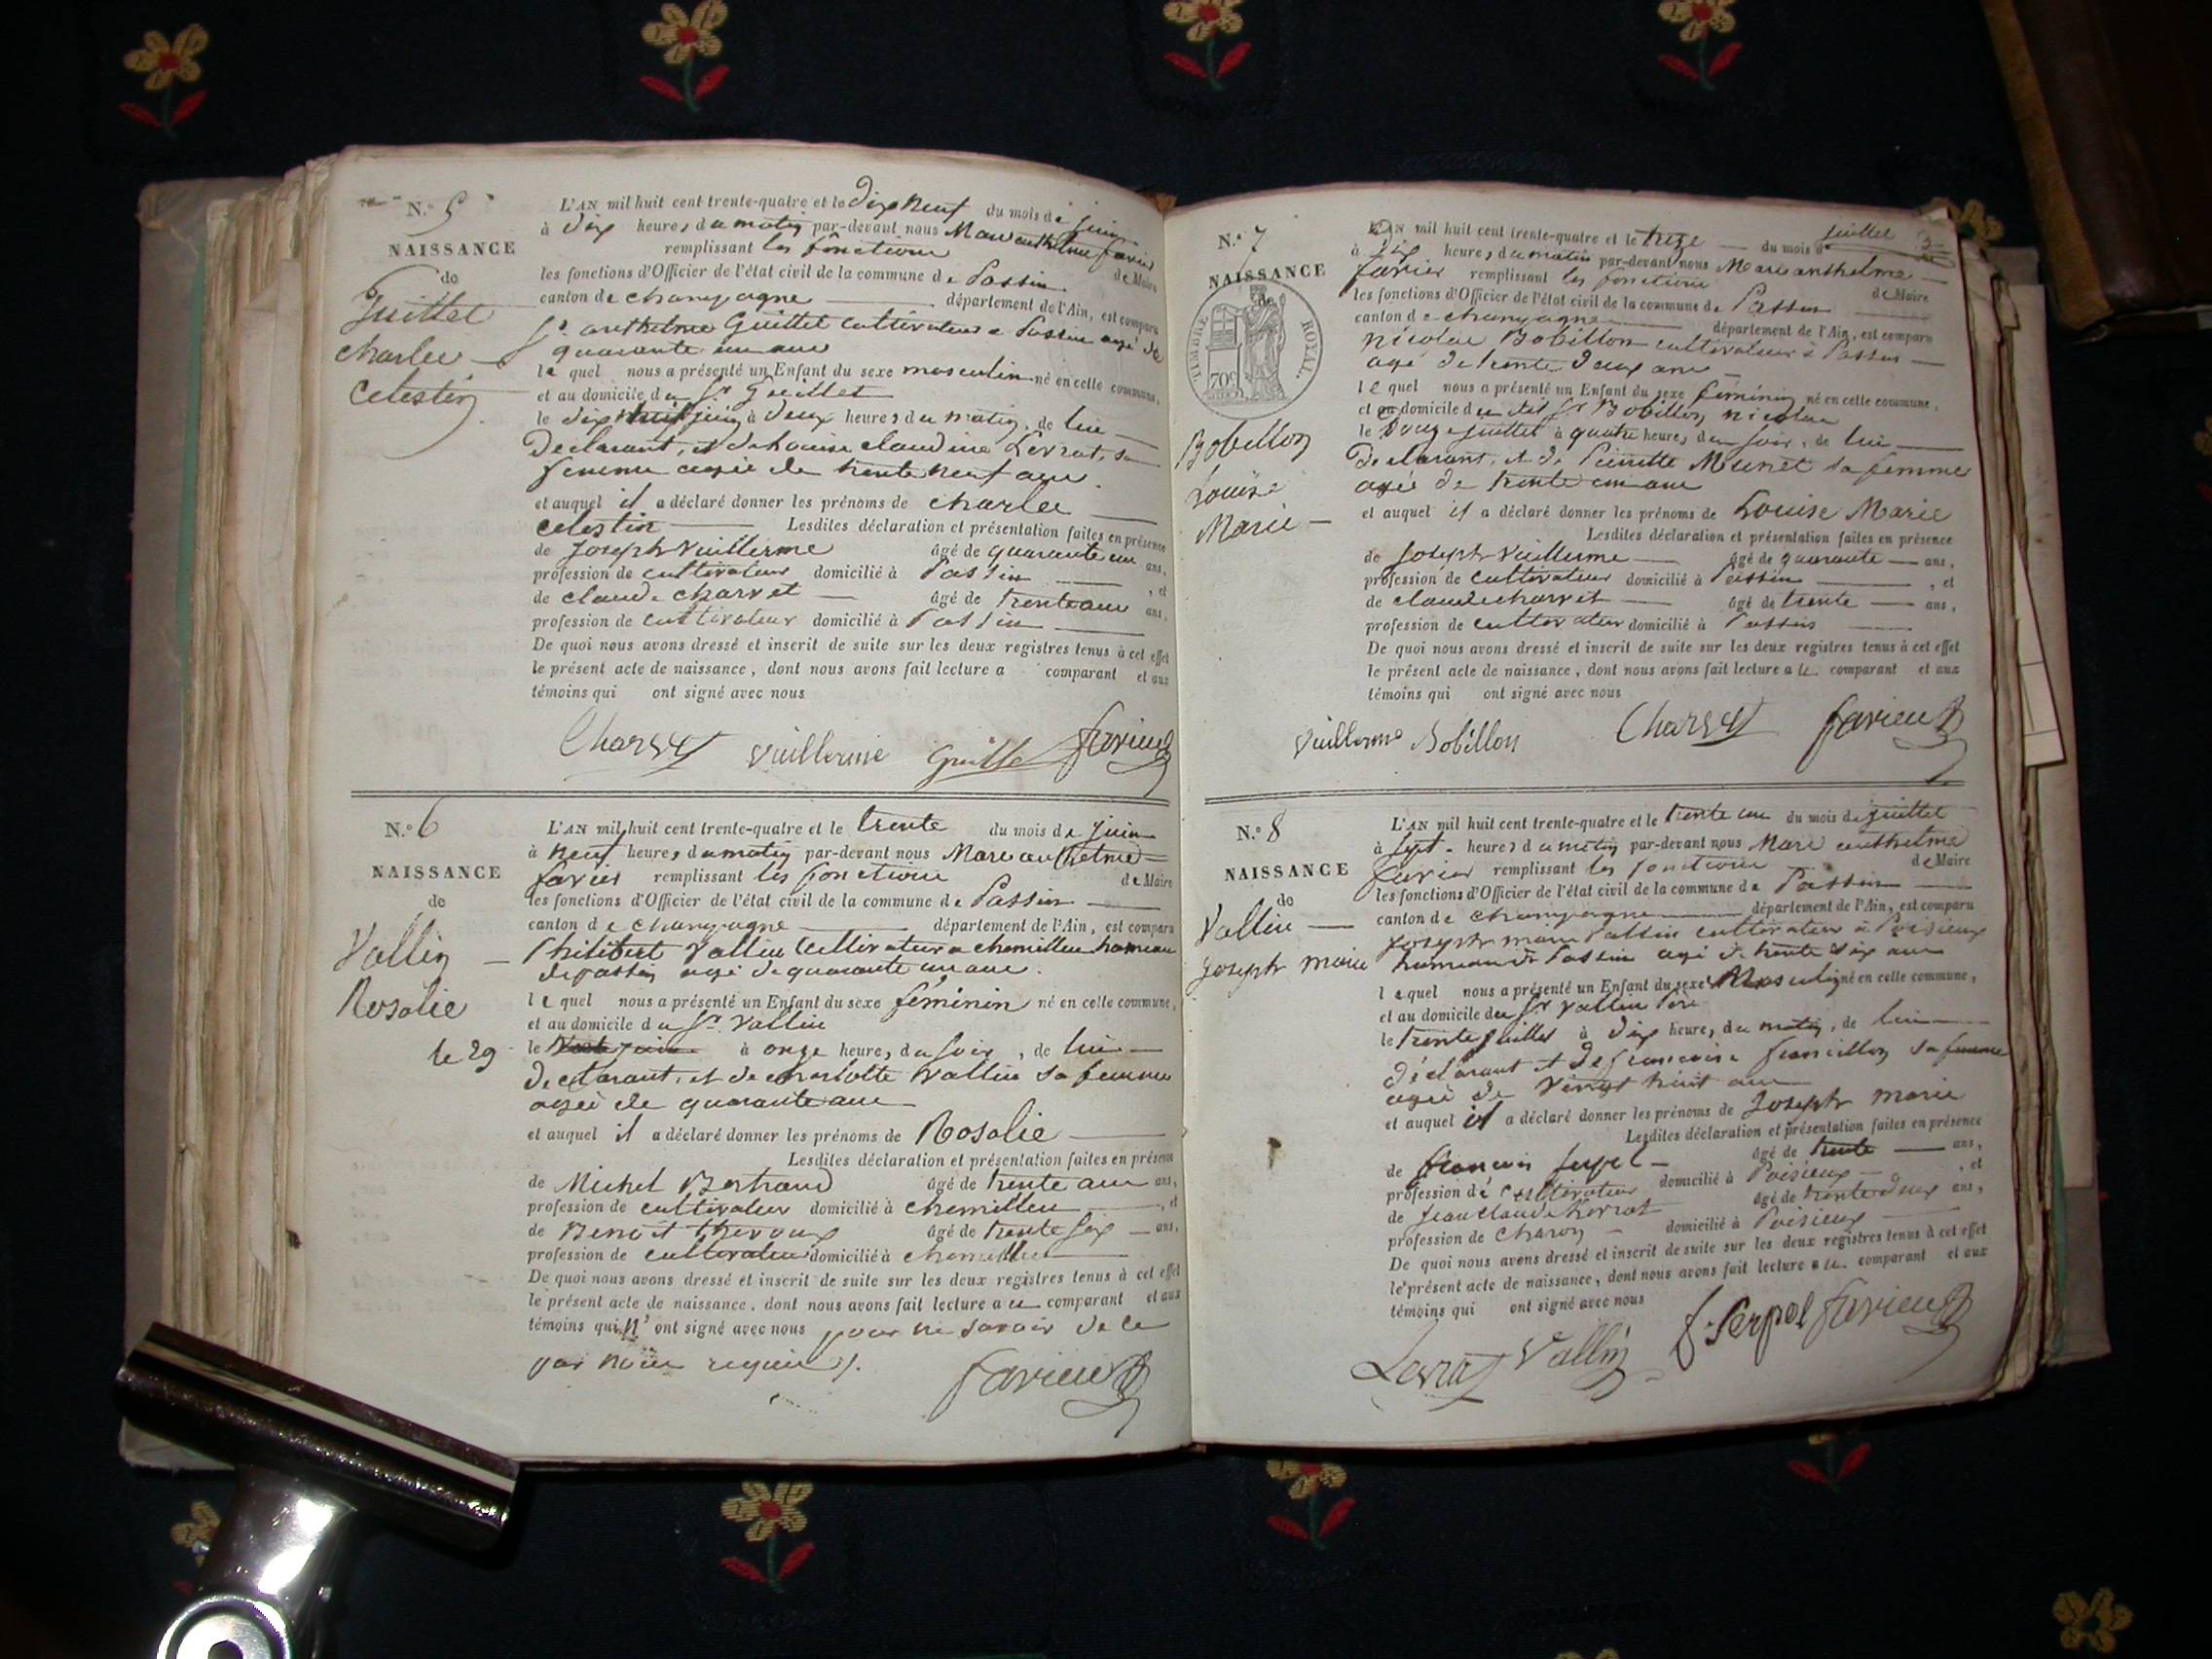 N.º 5
NAISSANCE
de
Guittet
Charles
Celestin
L'AN mil huit cent trente-quatre et le dix neuf du mois de juin
à dix heures du matin par-devant nous Marc anthelme favier
remplissant les fonctions de Maire
les fonctions d'Officier de l'état civil de la commune de Passin
canton de champagne département de l'Ain, est comparu
Sr. anthelme Guittet cultivateur a Passin agé de
quarante un ans
lequel nous a présenté un Enfant du sexe masculin né en celle commune,
et au domicile du Sr Guittet
le dix juin à deux heures du matin, de lui
Declarant, et de Louise claudine Levrat, sa
femme agée de trente neuf ans.
et auquel il a déclaré donner les prénoms de charles
celestin Lesdites déclaration et présentation faites en présence
de Joseph Vuillerme âgé de quarante un ans,
profession de cultivateur domicilié à Passin , et
de claude charvet âgé de trente ans ans,
profession de cultivateur domicilié à Passin
De quoi nous avons dressé et inscrit de suite sur les deux registres tenus à cet effet
le présent acte de naissance, dont nous avons fait lecture a comparant et aux
témoins qui ont signé avec nous
Charvet Vuillerme Guittet favier
N.º 6
NAISSANCE
de
Vallin
Rosalie
le 29
L'AN mil huit cent trente-quatre et le trente du mois de juin
à neuf heures du matin par-devant nous Marc anthelme
favier remplissant les fonctions de Maire
les fonctions d'Officier de l'état civil de la commune de Passin
canton de champagne département de l'Ain, est comparu
Philibert Vallin cultivateur a chemillieu hameau
de passin agé de quarante un ans.
lequel nous a présenté un Enfant du sexe féminin né en celle commune,
et au domicile du Sr. Vallin
le à onze heures du soir, de lui
declarant, et de charlotte Vallin sa femme
agée de quarante ans
et auquel il a déclaré donner les prénoms de Rosalie
Lesdites déclaration et présentation faites en présence
de Michel Bertrand âgé de trente ans ans,
profession de cultivateur domicilié à chemillieu , et
de Benoit âgé de trente six ans,
profession de cultivateur domicilié à chemillieu
De quoi nous avons dressé et inscrit de suite sur les deux registres tenus à cet effet
le présent acte de naissance, dont nous avons fait lecture au comparant et aux
témoins qui n'ont signé avec nous pour ne savoir de ce
par nous requis.
favier
N.º 7
NAISSANCE
de
TIMBRE ROYAL.
70c
Bobillon
Louise
Marie
3
L'AN mil huit cent trente-quatre et le treize du mois de juillet
à dix heures du matin par-devant nous Marc anthelme
favier remplissant les fonctions de Maire
les fonctions d'Officier de l'état civil de la commune de Passin
canton de champagne département de l'Ain, est comparu
nicolas Bobillon cultivateur à Passin
agé de trente deux ans
lequel nous a présenté un Enfant du sexe féminin né en celle commune,
et au domicile du dit Sr Bobillon nicolas
le douze juillet à quatre heures du soir, de lui
Declarant, et de Pierrette Monet sa femme
agée de trente un ans
et auquel il a déclaré donner les prénoms de Louise Marie
Lesdites déclaration et présentation faites en présence
de Joseph Vuillerme âgé de quarante ans,
profession de cultivateur domicilié à Passin , et
de claude charvet âgé de trente ans,
profession de cultivateur domicilié à Passin
De quoi nous avons dressé et inscrit de suite sur les deux registres tenus à cet effet
le présent acte de naissance, dont nous avons fait lecture au comparant et aux
témoins qui ont signé avec nous
Vuillerme Bobillon Charvet favier
N.º 8
NAISSANCE
de
Vallin
Joseph marie
L'AN mil huit cent trente-quatre et le trente un du mois de juillet
à sept heures du matin par-devant nous Marc anthelme
favier remplissant les fonctions de Maire
les fonctions d'Officier de l'état civil de la commune de Passin
canton de champagne département de l'Ain, est comparu
Joseph marie Vallin cultivateur à Poisieux
hameau de Passin agé de trente six ans
lequel nous a présenté un Enfant du sexe Masculin né en celle commune,
et au domicile du Sr Vallin Père
le trente juillet à dix heures du matin, de lui
déclarant et de francoise sa femme
agée de vingt huit ans
et auquel il a déclaré donner les prénoms de Joseph marie
Lesdites déclaration et présentation faites en présence
de francois Serpol âgé de trente ans,
profession de cultivateur domicilié à Poisieux , et
de Jean claude Levrat âgé de trente deux ans,
profession de Charon domicilié à Poisieux
De quoi nous avons dressé et inscrit de suite sur les deux registres tenus à cet effet
le présent acte de naissance, dont nous avons fait lecture au comparant et aux
témoins qui ont signé avec nous
Levrat Vallin f. Serpol favier